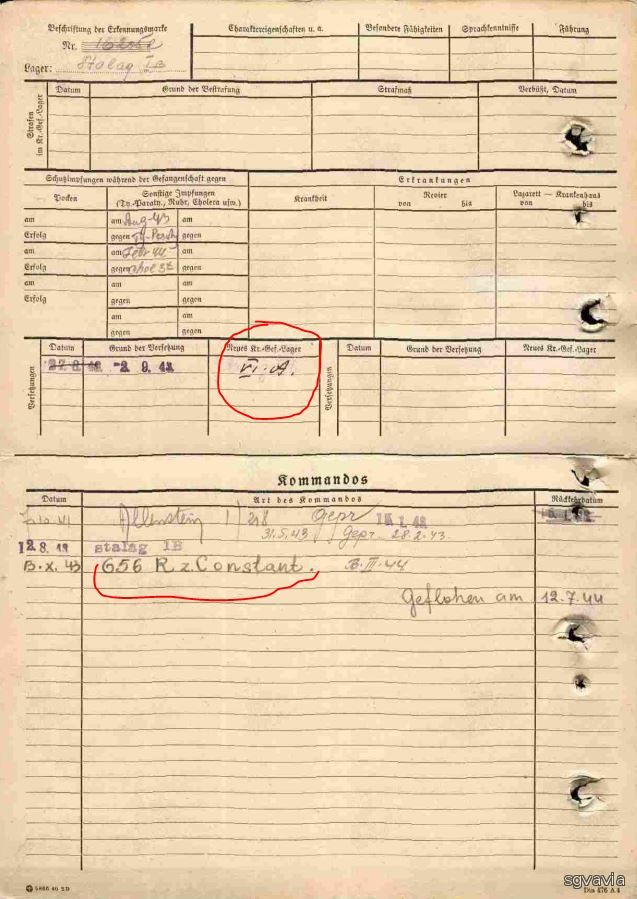 Beschriftung der Erkennungsmarke
Nr.
Lager: Stalag IB
Charaktereigenschaften u. a.
Besondere Fähigkeiten
Sprachkenntnisse
Führung
Strafen im Kr.-Gef.-Lager
Datum
Grund der Bestrafung
Strafmaß
Verbüßt, Datum
Schutzimpfungen während der Gefangenschaft gegen
Erkrankungen
Pocken
Sonstige Impfungen
(Ty.-Paraty., Ruhr, Cholera usw.)
Krankheit
Revier
von bis
Lazarett — Krankenhaus
von bis
am am Aug 43 am
Erfolg gegen gegen
am am Febr 44 am
Erfolg gegen gegen
am am am
Erfolg gegen gegen
am am
gegen gegen
Versetzungen
Datum
Grund der Versetzung
Neues Kr.-Gef.-Lager
Versetzungen
Datum
Grund der Versetzung
Neues Kr.-Gef.-Lager
27.8.43 2.9.43 VI.A.
Kommandos
Datum
Art des Kommandos
Rückkehrdatum
Allenstein
31.5.43 Gepr. 28.2.43.
12.8.43 Stalag IB
B.X.43 656 R z. Constant. B.III.44
Geflohen am 12.7.44
Din 476 A 4
sgvavia